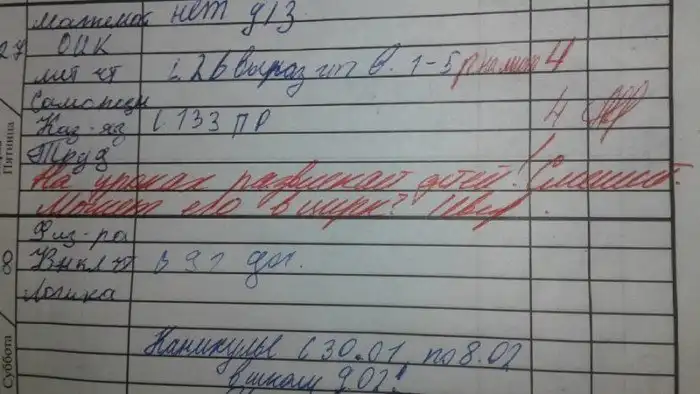 Математ нет д/з
27 ОИК
лит чт с 26 выраз чт в. 1-5 4
Самопозн
Каз-яз с 133 ПР 4
Труд
Пятница
На уроках развлекает детей! Смешит.
Может его в цирк?
Физ-ра
8 Внкл чт с 91 дог.
Логика
Каникулы с 30.01 по 8.02
в школу 9.02!
Суббота